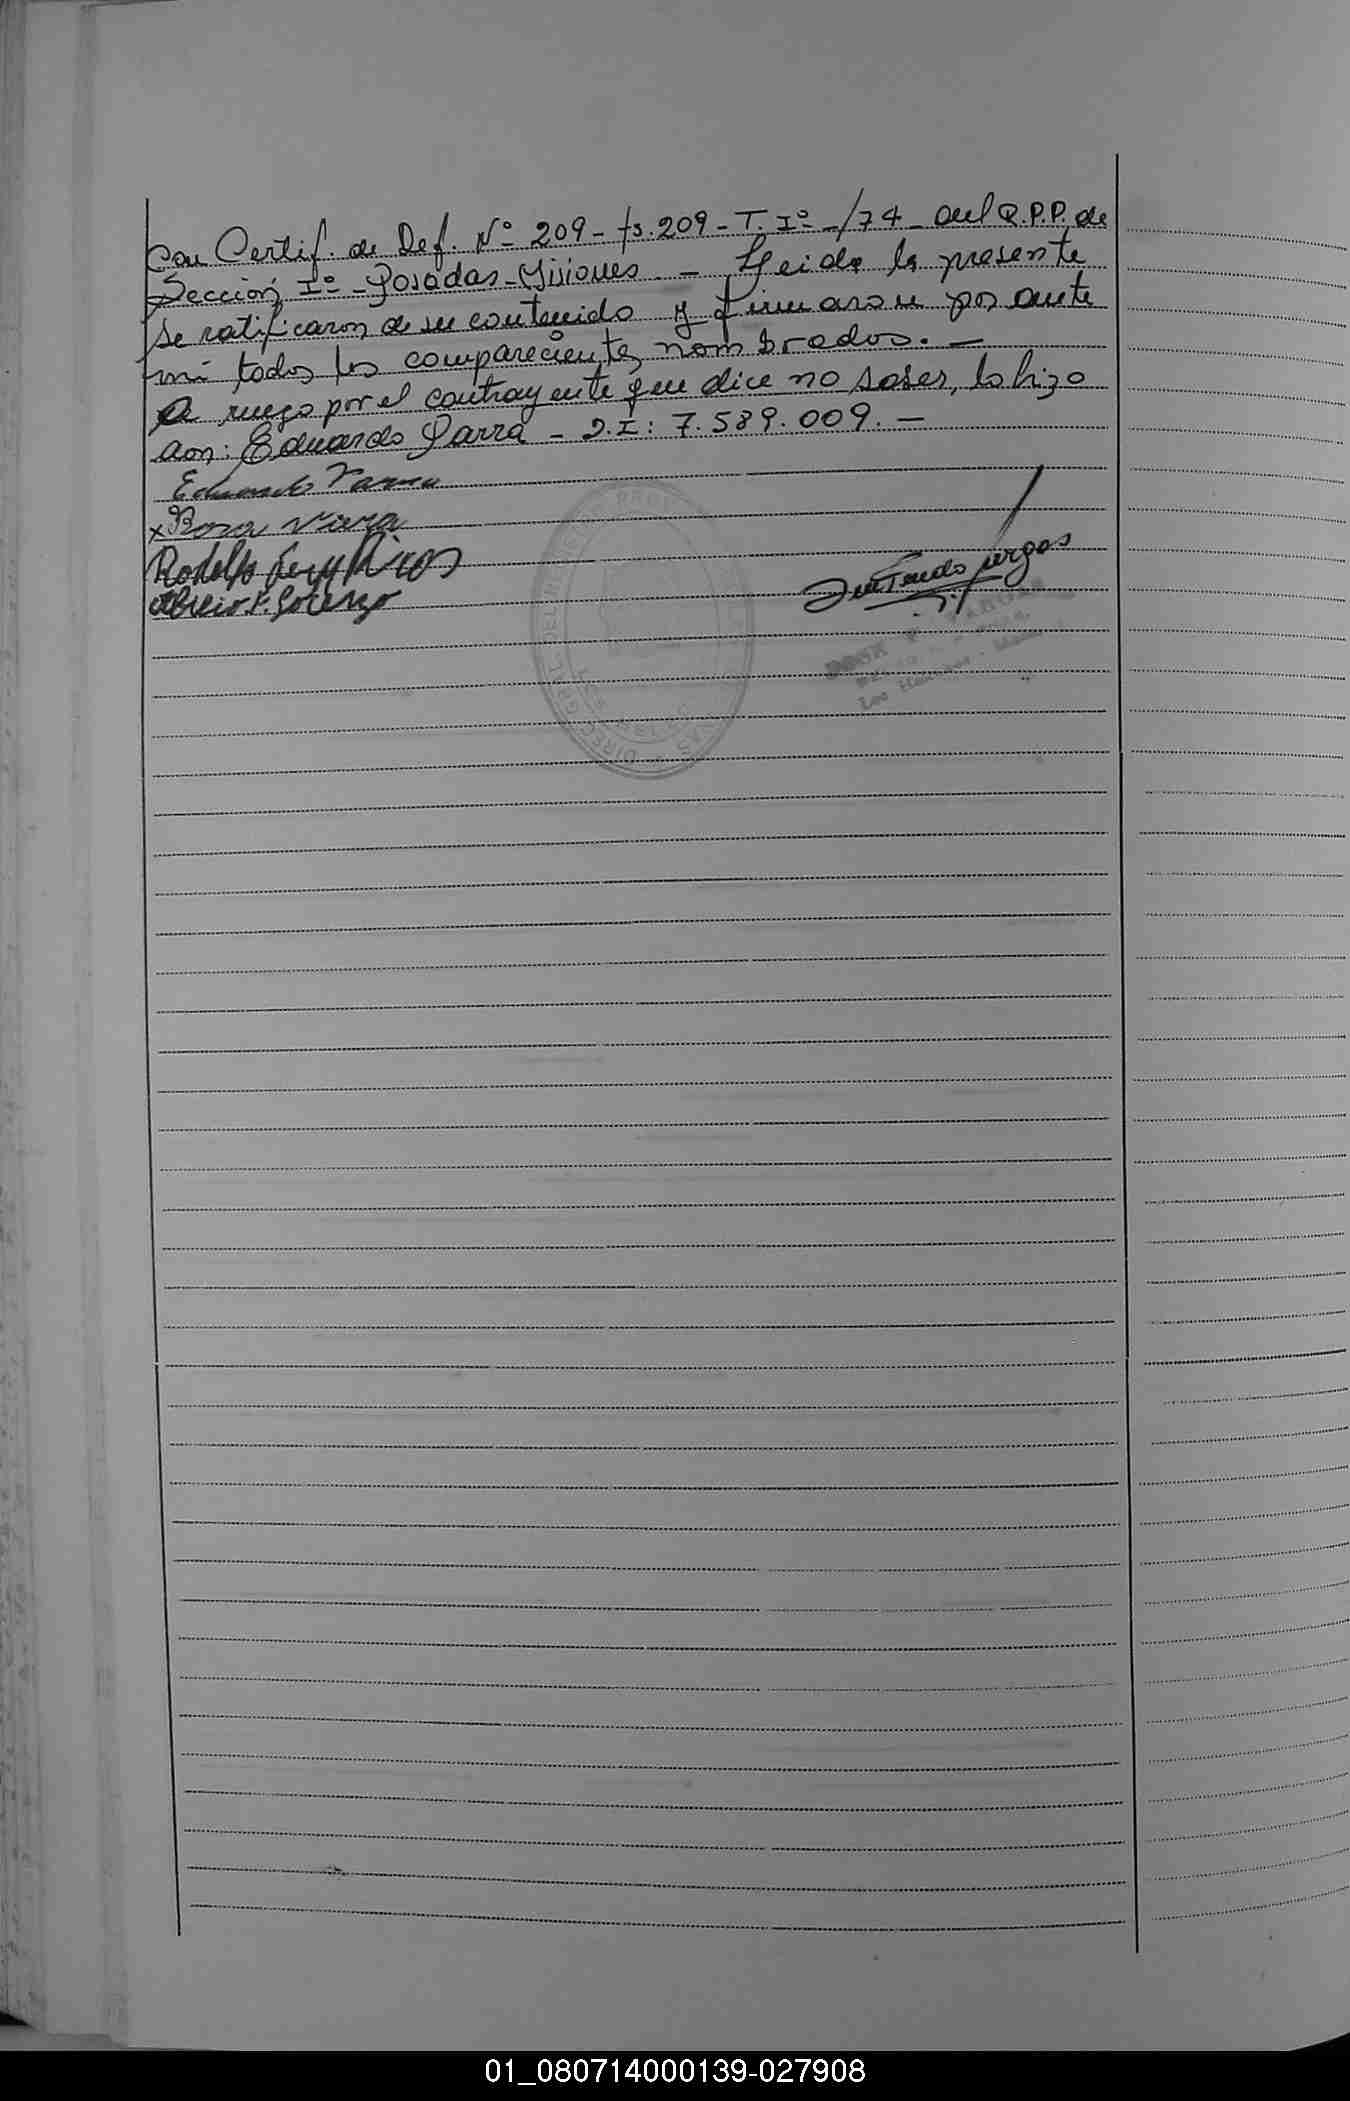 con Certif. de Def. Nº 209 - fs. 209 - T. Iº - /74 - del R.P.P. de
Sección Iº - Posadas - Misiones - Leida la presente
se ratificaron de su contenido y firmaron por ante
mí todos los comparecientes nombrados. -
A ruego por el contrayente que dice no saber, lo hizo
don: Eduardo Parra - D.I: 7.589.009. -
Eduardo Parra
x Rosa Viera
Rodolfo
01_080714000139-027908